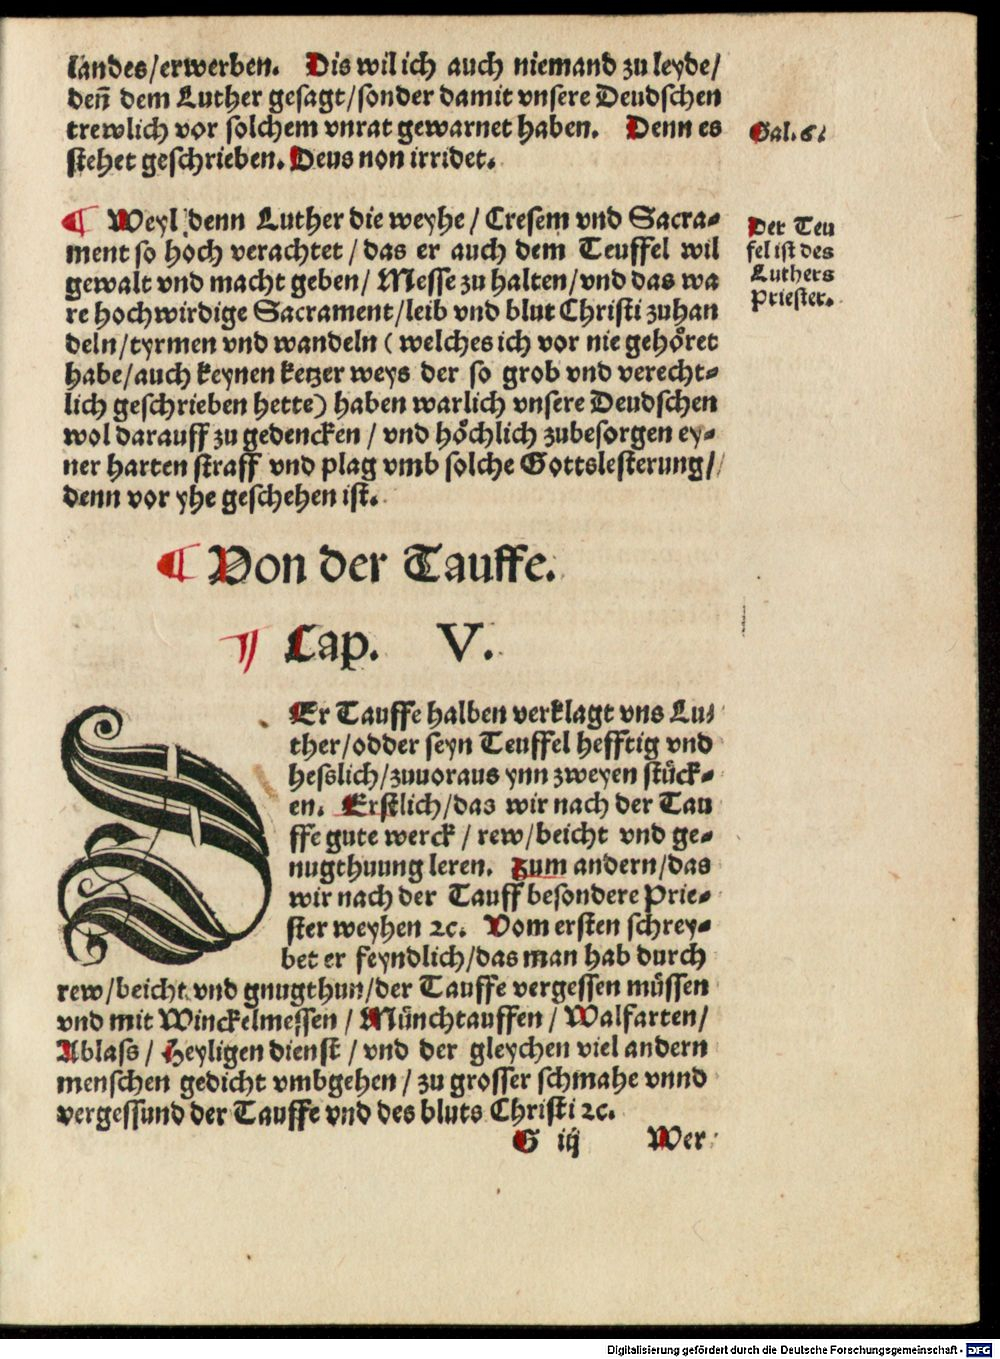 landes/erwerben. Dis wil ich auch niemand zu leyde/
deñ dem Luther gesagt/sonder damit vnsere Deudschen
trewlich vor solchem vnrat gewarnet haben. Denn es
stehet geschrieben. Deus non irridet.
Gal. 6.
¶ Weyl denn Luther die weyhe / Cresem vnd Sacra-
ment so hoch verachtet / das er auch dem Teuffel wil
gewalt vnd macht geben/ Messe zu halten/vnd das wa
re hochwirdige Sacrament/leib vnd blut Christi zuhan
deln/tyrmen vnd wandeln ( welches ich vor nie gehöret
habe/auch keynen ketzer weys der so grob vnd verecht-
lich geschrieben hette) haben warlich vnsere Deudschen
wol darauff zu gedencken / vnd höchlich zubesorgen ey-
ner harten straff vnd plag vmb solche Gottslesterung/
denn vor yhe geschehen ist.
Der Teu
fel ist des
Luthers
Priester.
¶ Von der Tauffe.
¶ Cap. V.
DEr Tauffe halben verklagt vns Lu-
ther/odder seyn Teuffel hefftig vnd
hesslich/zuuoraus ynn zweyen stück-
en. Erstlich/das wir nach der Tau
ffe gute werck / rew/beicht vnd ge-
nugthuung leren. Zum andern/das
wir nach der Tauff besondere Prie-
ster weyhen ꝛc. Vom ersten schrey-
bet er feyndlich/das man hab durch
rew/beicht vnd gnugthun/der Tauffe vergessen müssen
vnd mit Winckelmessen / Münchtauffen / Walfarten/
Ablass / Heyligen dienst / vnd der gleychen viel andern
menschen gedicht vmbgehen / zu grosser schmahe vnnd
vergessund der Tauffe vnd des bluts Christi ꝛc.
G iij Wer
Digitalisierung gefördert durch die Deutsche Forschungsgemeinschaft - DFG